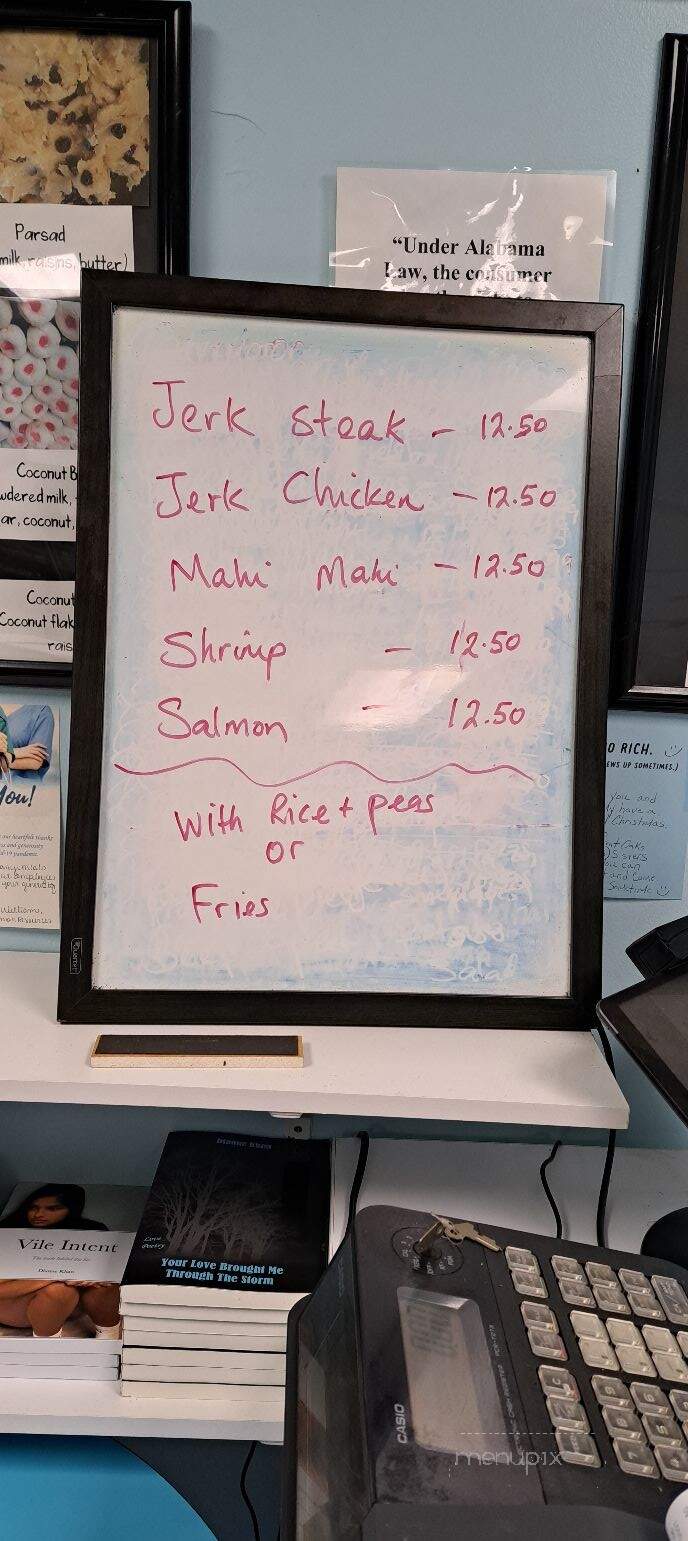 Parsad
milk, raisins, butter)
"Under Alabama
Law, the consumer
Jerk steak - 12.50
Jerk Chicken - 12.50
Mahi Mahi - 12.50
Shrimp - 12.50
Salmon - 12.50
With Rice + peas
or
Fries
Salad
Coconut B
wdered milk,
ar, coconut,
Coconut
Coconut flak
rais
You!
O RICH.
EWS UP SOMETIMES.)
you and
y have a
Christmas.
Vile Intent
Dionne Khan
Dionne Khan
Love
Poetry
Your Love Brought Me
Through The Storm
CASIO
menupix